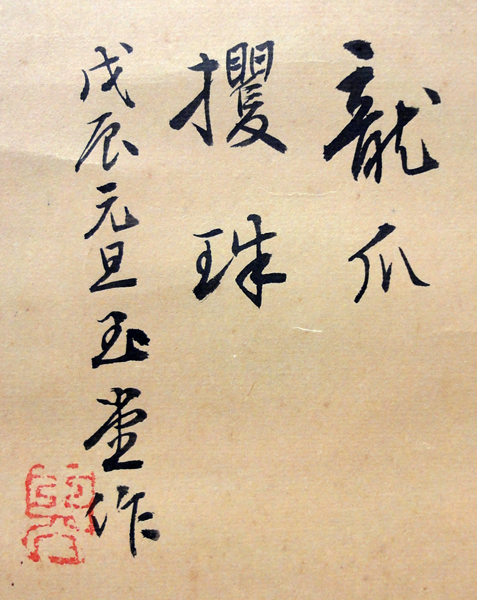 龍爪
攫珠
戊辰元旦玉堂作